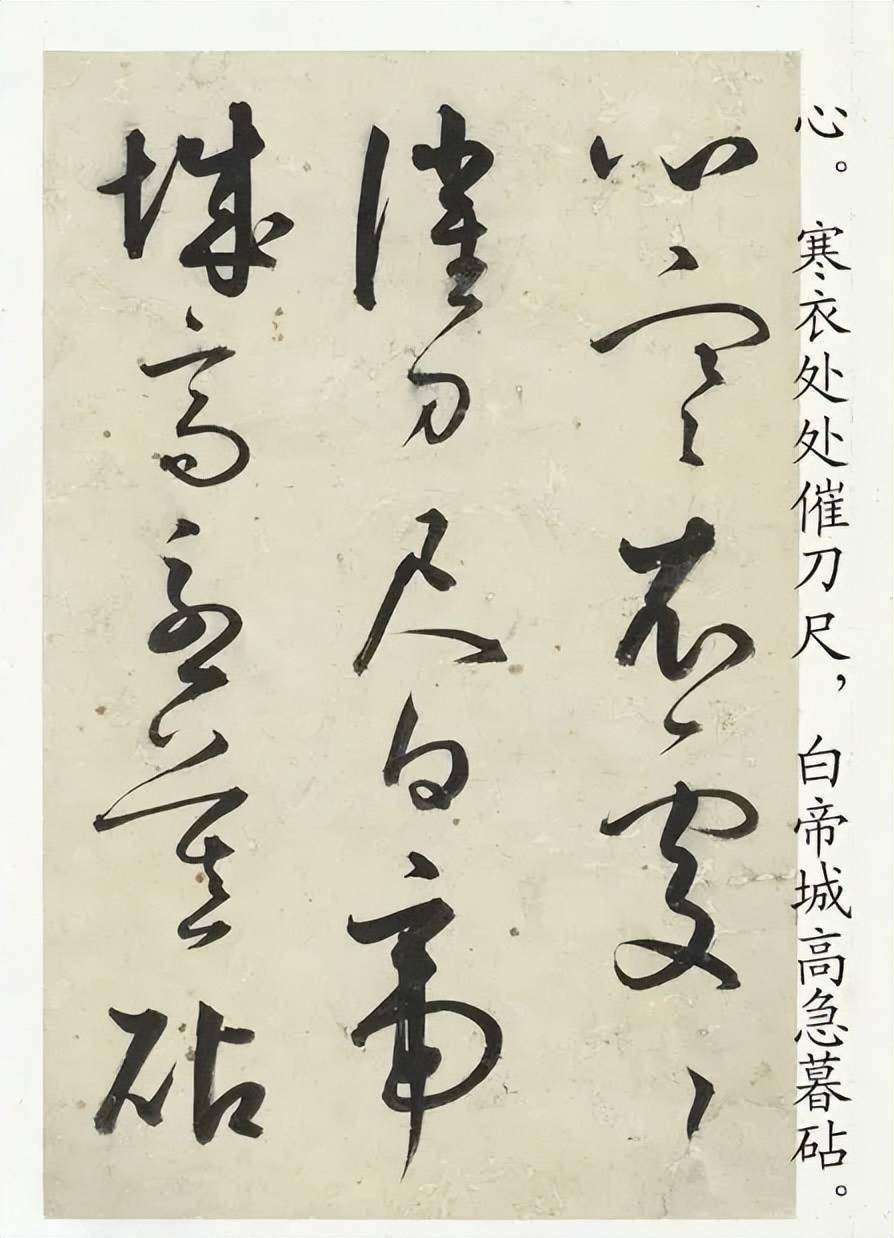 心。寒衣处处催刀尺，白帝城高急暮砧。
心寒衣處〻
催刀尺白帝
城高急暮砧